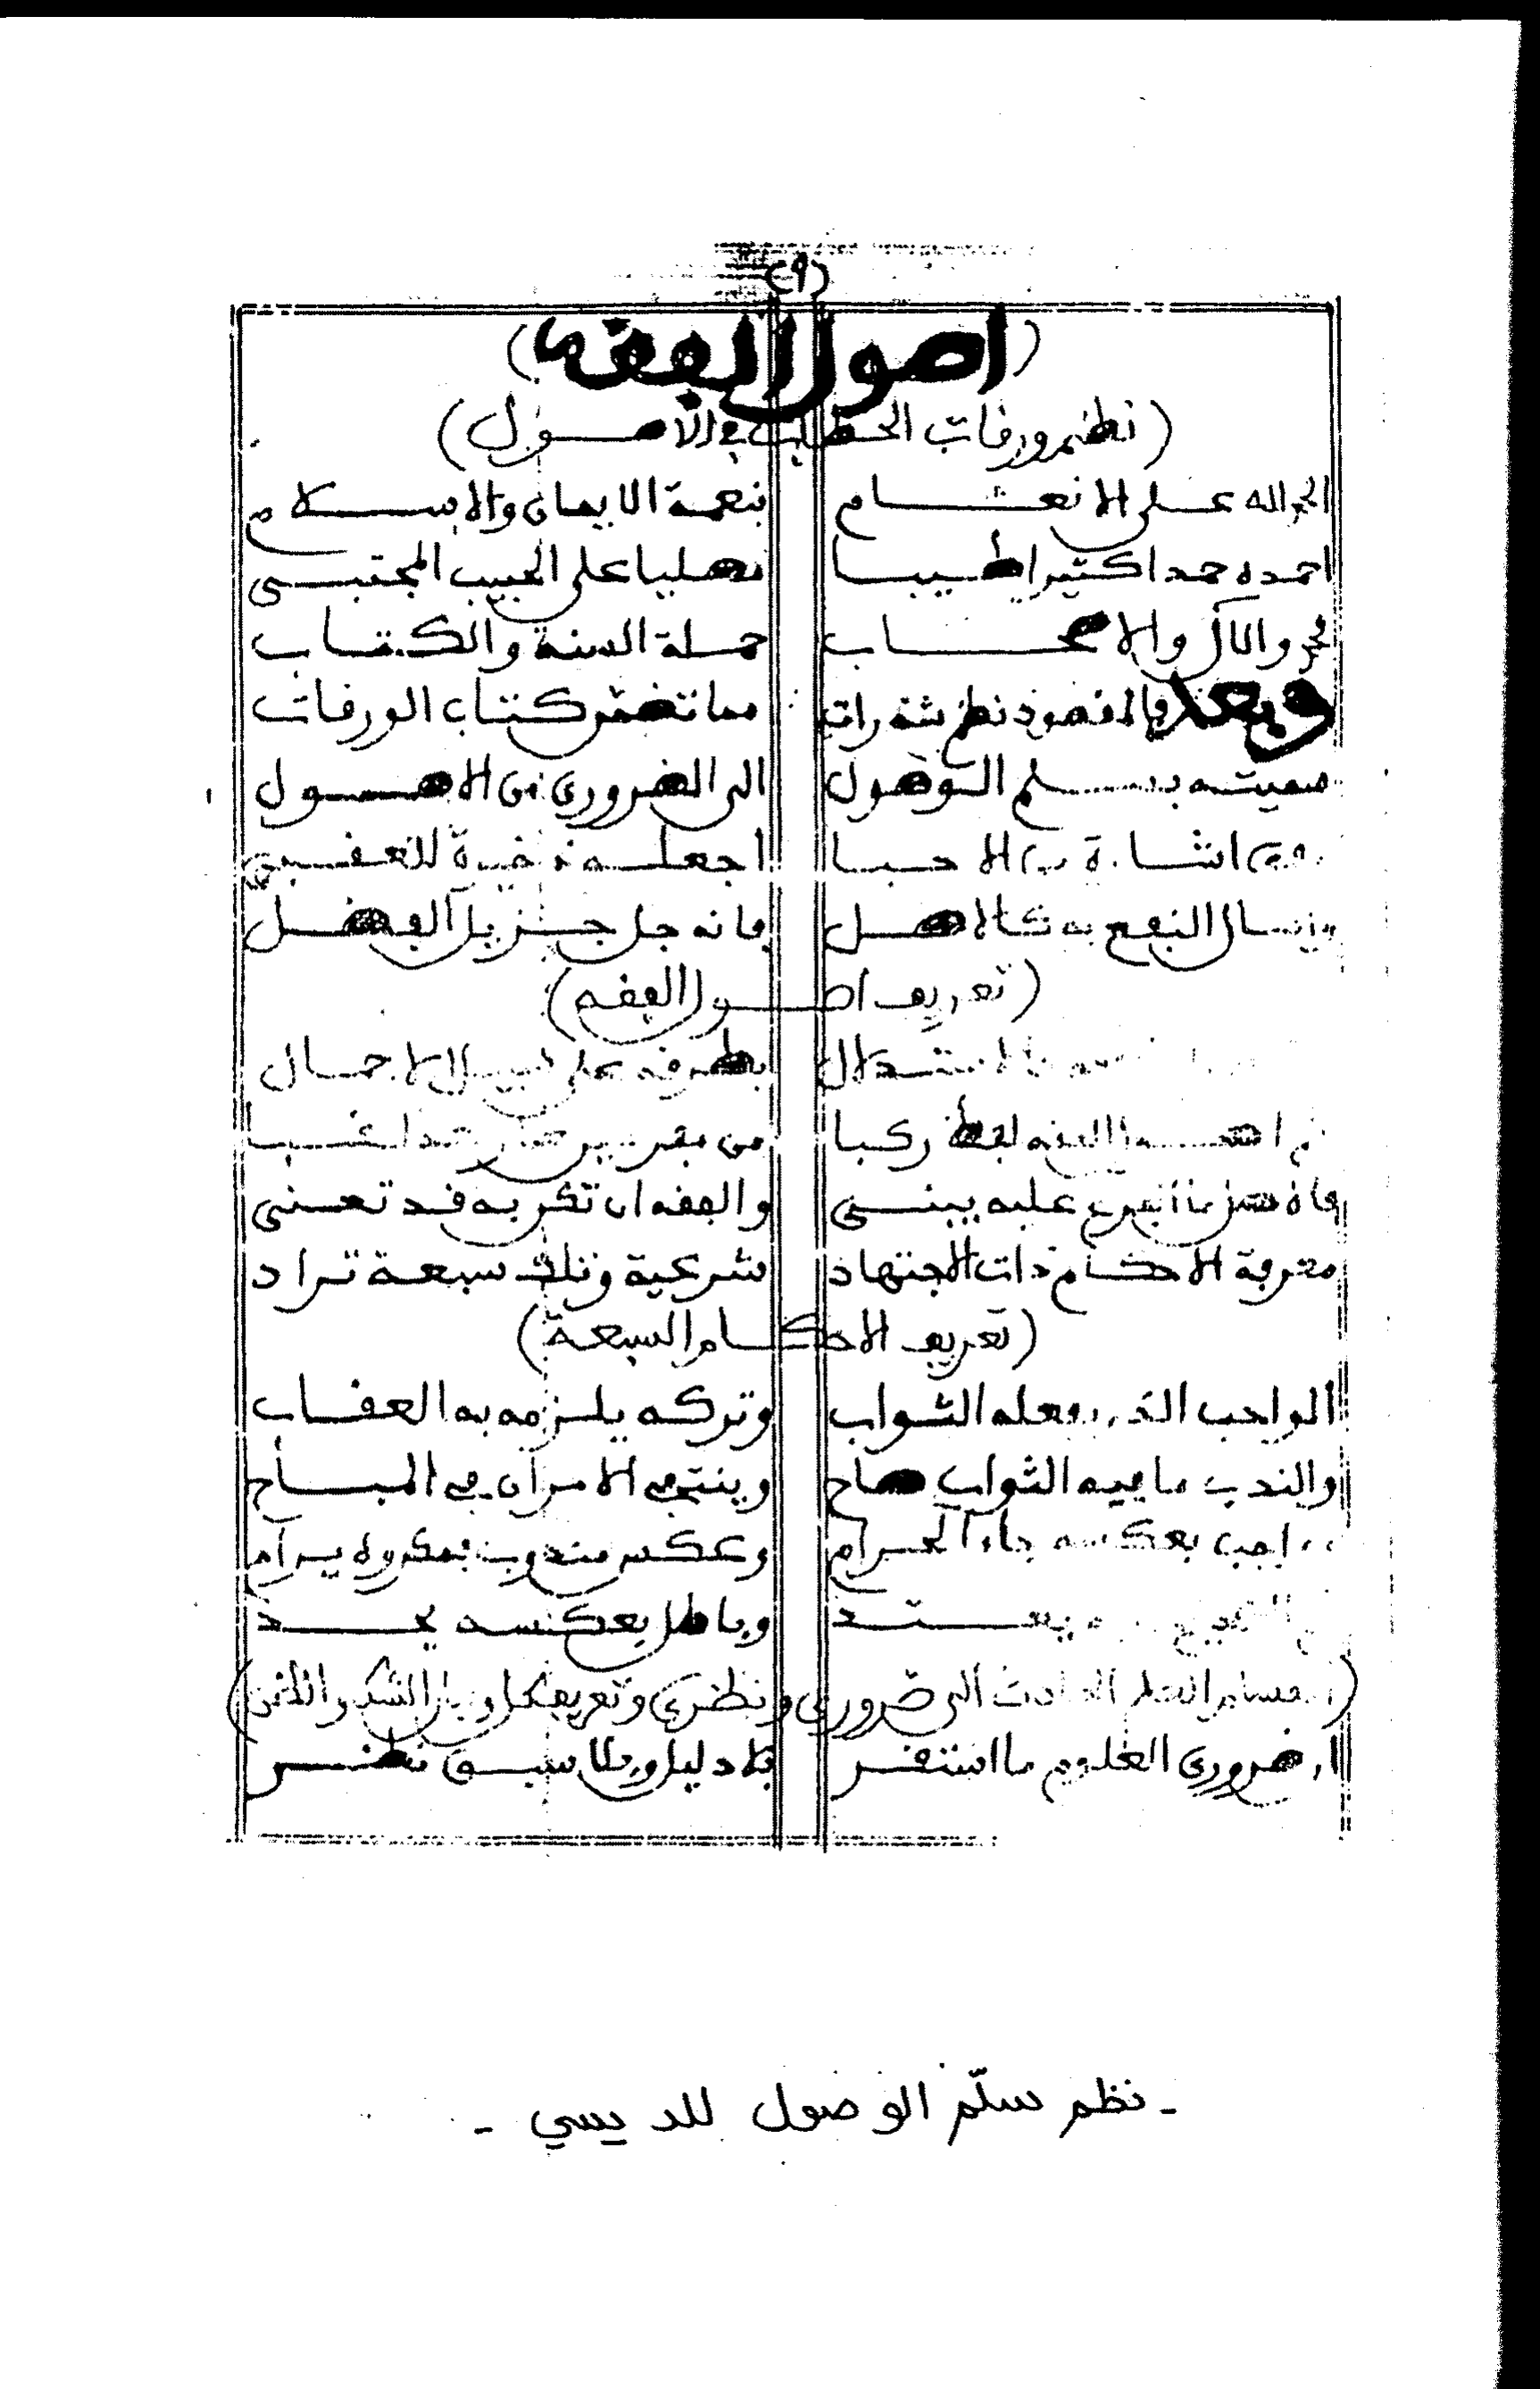 (٩)
(اصول الفقه)
(نظم ورقات الخطاب في الاصول)
الحمد لله على الانعام بنعمة الايمان والاسلام
احمده حمدا كثيرا طيبا مصليا على الحبيب المجتبى
محمد والآل والاصحاب حملة السنة والكتاب
وبعد فالمقصود نظم شذرات مما تضمن كتاب الورقات
سميته بسلم الوصول الى الضروري من الاصول
اجعله ذخيرة للعقبى
ونسال النفع به كالاصل فانه جل جزيل الفضل
(تعريف اصول الفقه)
الاستدلال بطرقه على سبيل الاجمال
اصول الفقه لفظ ركبا من مفردين
عليه يبنى والفقه ان تكن به قد تعنى
معرفة الاحكام ذات الاجتهاد شرعية وتلك سبعة تراد
(تعريف الاحكام السبعة)
الواجب الذي بفعله الثواب وتركه يلزمه به العقاب
والندب ما فيه الثواب صاح وينتفي الامران في المباح
واجب بعكسه جاء الحرام وعكس مندوب بمكروه يرام
يعتد وباطل بعكسه يحد
(اقسام العلم الحادث الى ضروري ونظري وتعريف كل وبيان الشك والظن)
ضروري العلوم ما استقر بلا دليل وبلا سبق نظر
- نظم سلّم الوصول للديسي -